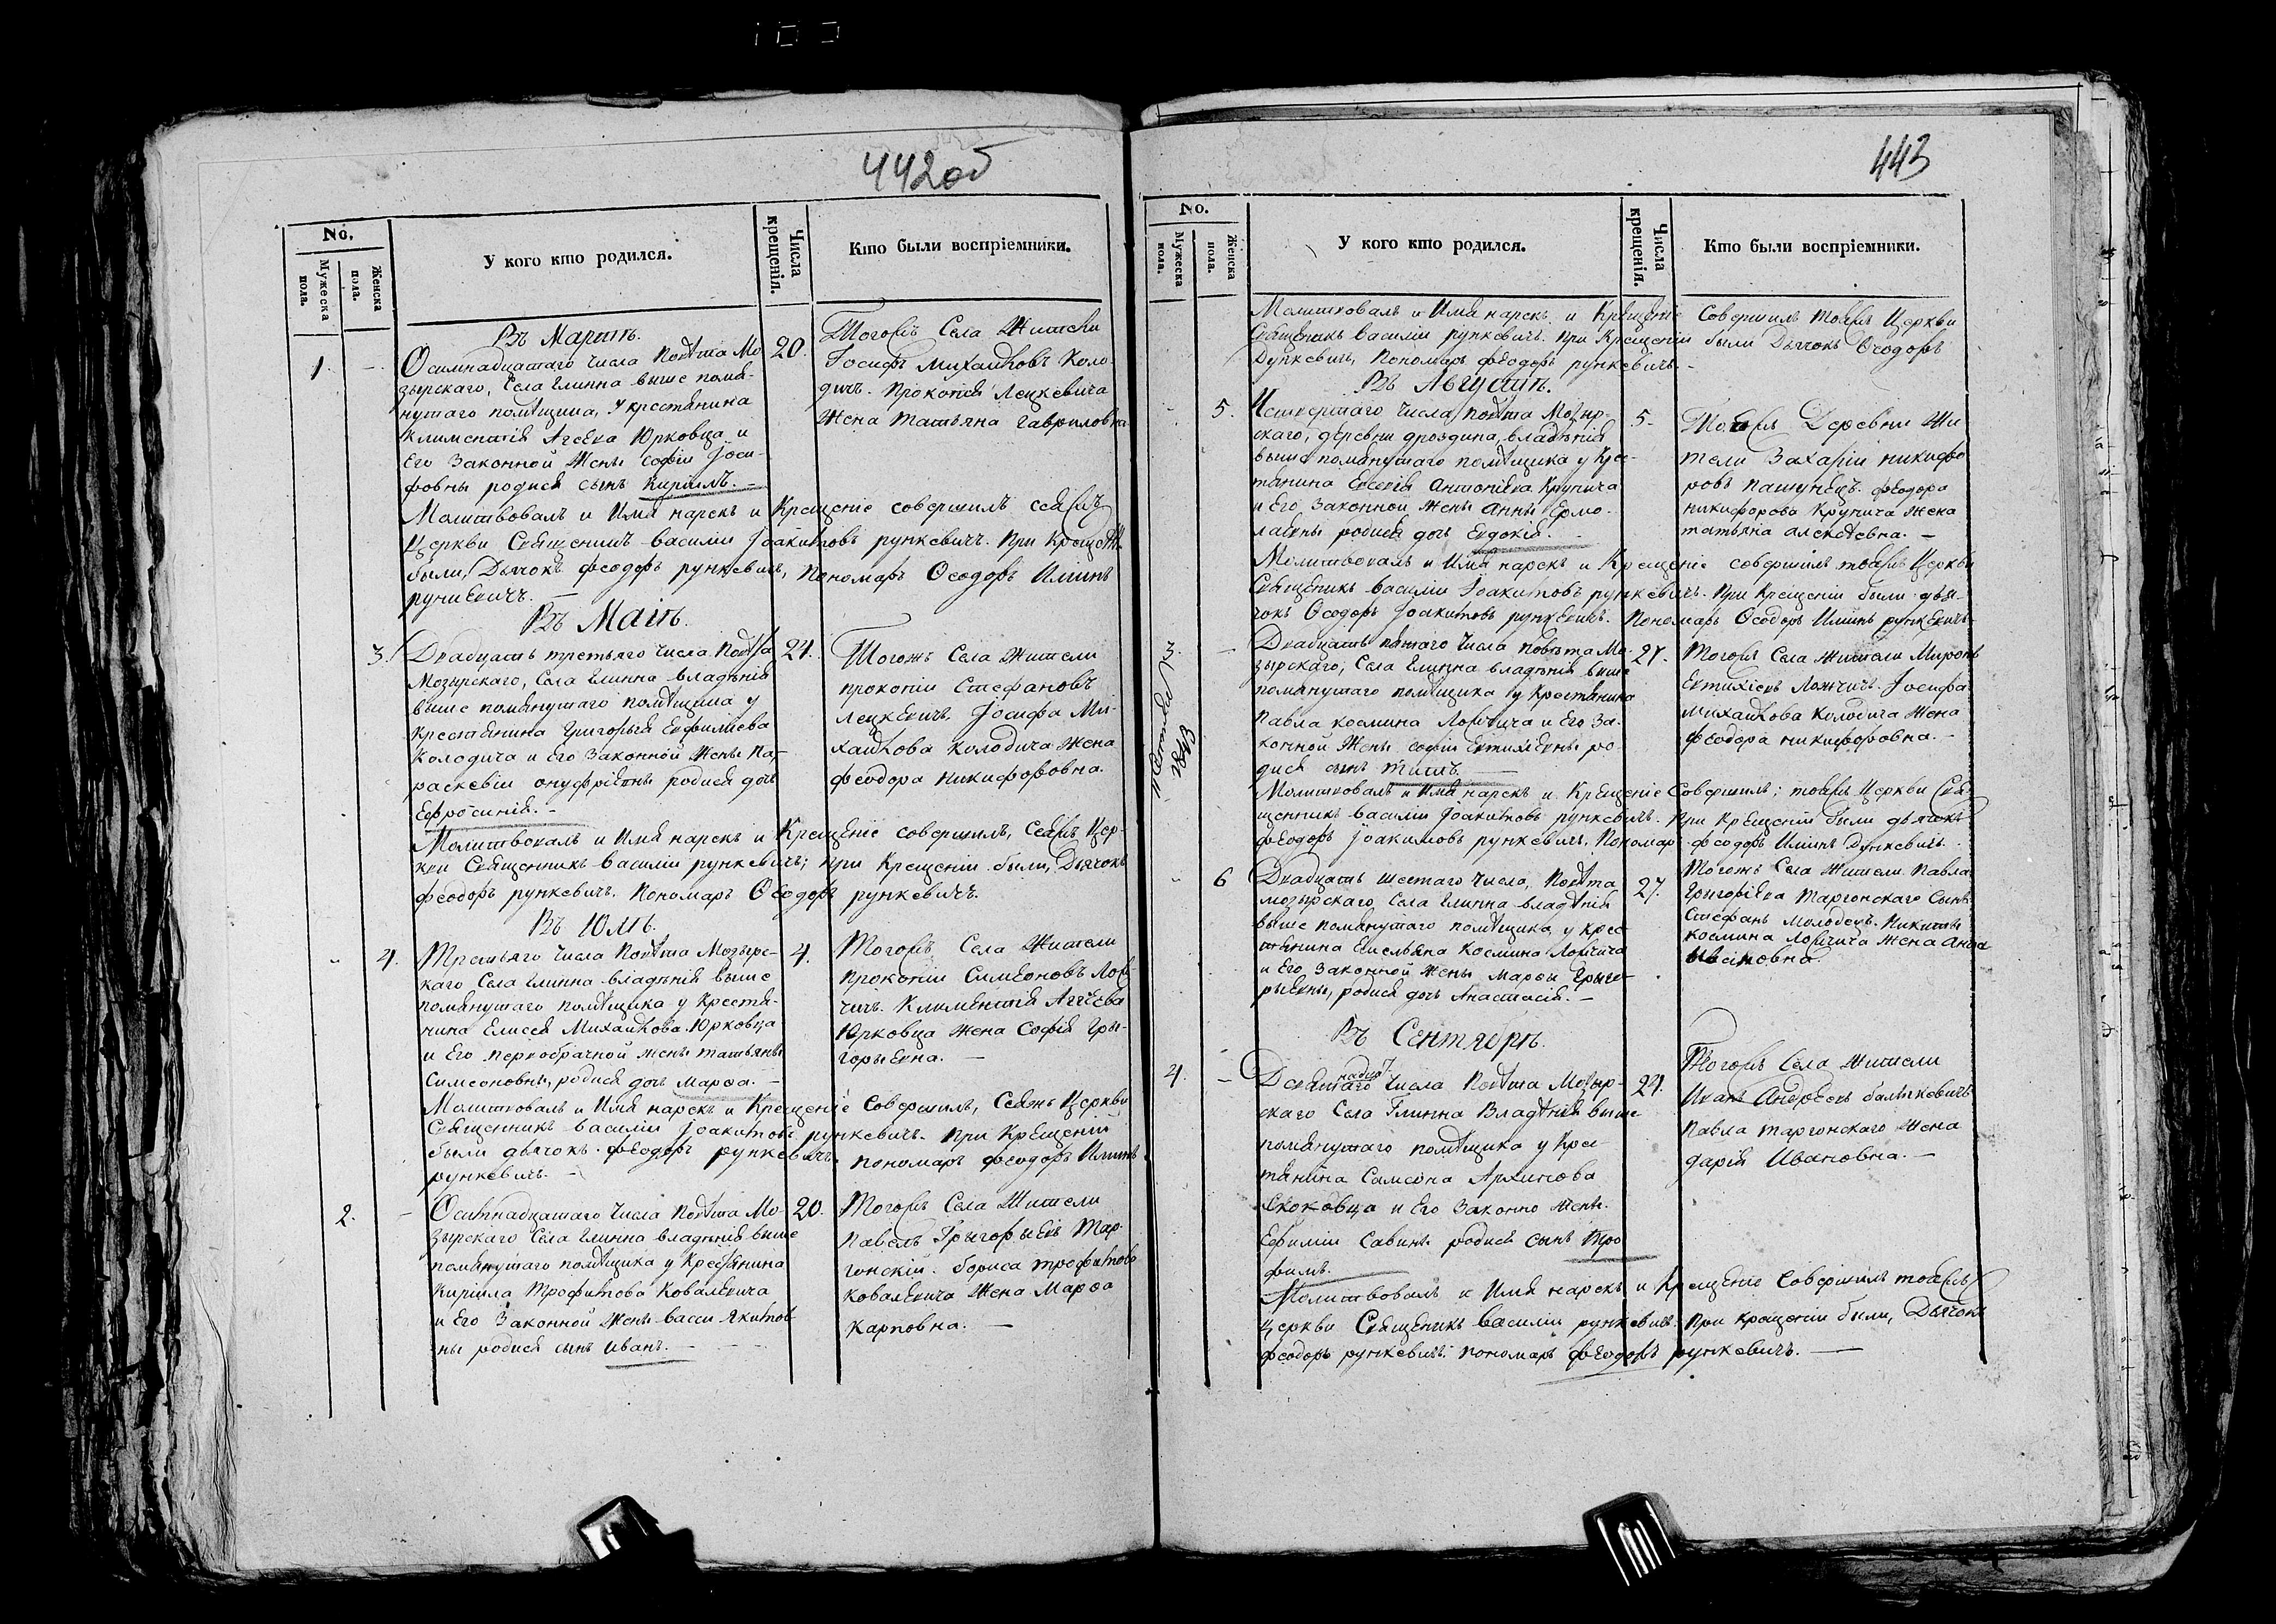 442об
No.
Мужеска пола.
Женска пола.
У кого кто родился.
Числа крещенія.
Кто были воспріемники.
Въ Мартѣ.
1.
Осимнадцатаго числа Повѣта Мо-
зырскаго, Села Глинна выше помя-
нутаго помѣщика, у крестянина
Климентія Агеева Юрковца и
Его Законной Жены Софіи Іоси-
фовны родися сынъ Кириллъ. -
20.
Тогожъ Села Жители
Іосифъ Михайловъ Коло-
дичъ. Прокопія Лецкевича
Жена Татьяна Гавриловна
Молитвовалъ и Имя нарекъ и Крещеніе совершилъ сеяжъ
Церкви Священникъ Василій Іоакимовъ рункевичъ. При Крещеніи
были, Дьячокъ феодоръ рункевичъ, Пономаръ Ѳеодоръ Илiинъ
рункевичъ. -
Въ Маіѣ.
3.
Двадцать третьяго Числа Повѣта
Мозырскаго, Села Глинна владѣнія
выше помянутаго помѣщика у
Крестянина Григорыя Евфиміева
Колодича и Его Законной Жены Па-
раскевіи Онуфріевны родися дочь
Ефросинія. -
24.
Тогожъ Села Жители
прокопій Стефановъ
Лецкевичъ, Іосифа Ми-
хайлова Колодича Жена
феодора Никифоровна.
Молитвовалъ и Имя нарекъ и Крещеніе совершилъ, Сеяжъ Цер-
кви Священникъ Василій рункевичъ; при Крещеніи были, Дьячокъ
феодоръ рункевичъ. Пономаръ Ѳеодоръ рункевичъ.
Въ Юлѣ.
4.
Третьяго числа Повѣта Мозырс-
каго Села Глинна владѣнія выше
помянутаго помѣщика у Крестя-
нина Елисея Михайлова Юрковца
и Его первобрачной жены татьяны
Симеоновны, родися дочь Марѳа. -
4.
Тогожъ Села Жители
прокопій Симеоновъ Лов-
чичъ. Климентія Аггеева
Юрковца Жена Софія Гры-
горыевна. -
Молитвовалъ и Имя нарекъ и Крещеніе Совершилъ, Сеяжъ Церкви
Священникъ Василій Іоакимовъ рункевичъ. При Крещеніи
были дьячокъ феодоръ рункевичъ. пономаръ феодоръ Илiинъ
рункевичъ. -
2.
Осимнадцатаго Числа Повѣта Мо-
зырскаго Села Глинна владѣнія выше
помянутаго помѣщика у Крестянина
Кирила Трофимова Ковалевича
и Его Законной Жены васси Якимов-
ны родися сынъ Иванъ. -
20.
Тогожъ Села Жители
павелъ Грыгорыевъ Тар-
гонскій. бориса трофимова
Ковалевича Жена Марѳа
Карповна. -
443
No.
Мужеска пола.
Женска пола.
У кого кто родился.
Числа крещенія.
Кто были воспріемники.
Молитвовалъ и Имя нарекъ и Крещеніе Совершилъ тояжъ Церкви
Священикъ Василій рункевичъ. При Крещеніи были Дьячокъ Ѳеодоръ
рункевичъ, Пономаръ феодоръ рункевичъ. -
Въ Августѣ.
5.
Четвертаго Числа, Повѣта Мозыр-
скаго, деревни дроздина, владѣнія
выше помянутаго помѣщика у Крес-
тянина Евсевія Антоніева Крупича
и Его Законной Жены Анны Ермо-
лаевны родися дочь Евдокія. -
5.
Тояжъ Деревни Жи
тели Захарій никифо
ровъ пашунецъ. феодора
никифорова Крупича Жена
татьяна алексѣевна. -
Молитвовалъ и Имя нарекъ и Крещеніе совершилъ тояжъ Церкви
Священикъ Василій Іоакимовъ рункевичъ. При Крещеніи были дья-
чокъ Ѳеодоръ Іоакимовъ рункевичъ. Пономаръ Ѳеодоръ Илiинъ рункевичъ.
3.
1843
Двадцать пятаго Числа Повѣта Мо-
зырскаго, Села Глинна владѣнія выше
помянутаго помѣщика у крестянина
Павла космина Ловчича и Его За-
конной Жены Софіи Евтихіевны ро-
дися сынъ Титъ. -
27.
Тогожъ Села Жители Миронъ
Евтихіевъ Ловчичъ. Іосифа
михайлова Колодича Жена
феодора никифоровна. -
Молитвовалъ и Имя нарекъ и Крещеніе Совершилъ; тояжъ Церкви Свя-
щенникъ Василій Іоакимовъ рункевичъ. При Крещеніи были дьячокъ
феодоръ Іоакимовъ рункевичъ. Пономаръ феодоръ Илiинъ рункевичъ.
6
Двадцать шестаго Числа, Повѣта
мозырскаго Села Глинна владѣнія
выше помянутаго помѣщика у крес
тянина Емельяна Космина Ловчича
и Его Законной Жены Марѳы Грыго-
рыевны, родися дочь Анастасія. -
27.
Тогожъ Села Жители Павла
Григоріева Таргонскаго Сынъ
Стефанъ молодецъ. Никиты
космина Ловчича Жена Анна
Ивановна.
Въ Сентябрѣ.
4.
надцат
Девятаго Числа Повѣта Мозыр-
скаго Села Глинна Владѣнія выше
помянутаго помѣщика у Крес-
тянина Самсона Архипова
Скоковца и Его Законно Жены.
Ефиміи Савины родися сынъ Тро
фимъ.
24.
Тогожъ Села Жители
Иванъ Андреевъ
Павла таргонскаго Жена
дарія Ивановна. -
Молитвовалъ и Имя нарекъ и Крещеніе Совершилъ тояжъ
Церкви Священикъ Василій рункевичъ. При Крещеніи были, Дьячокъ
феодоръ рункевичъ. Пономаръ феодоръ рункевичъ. -